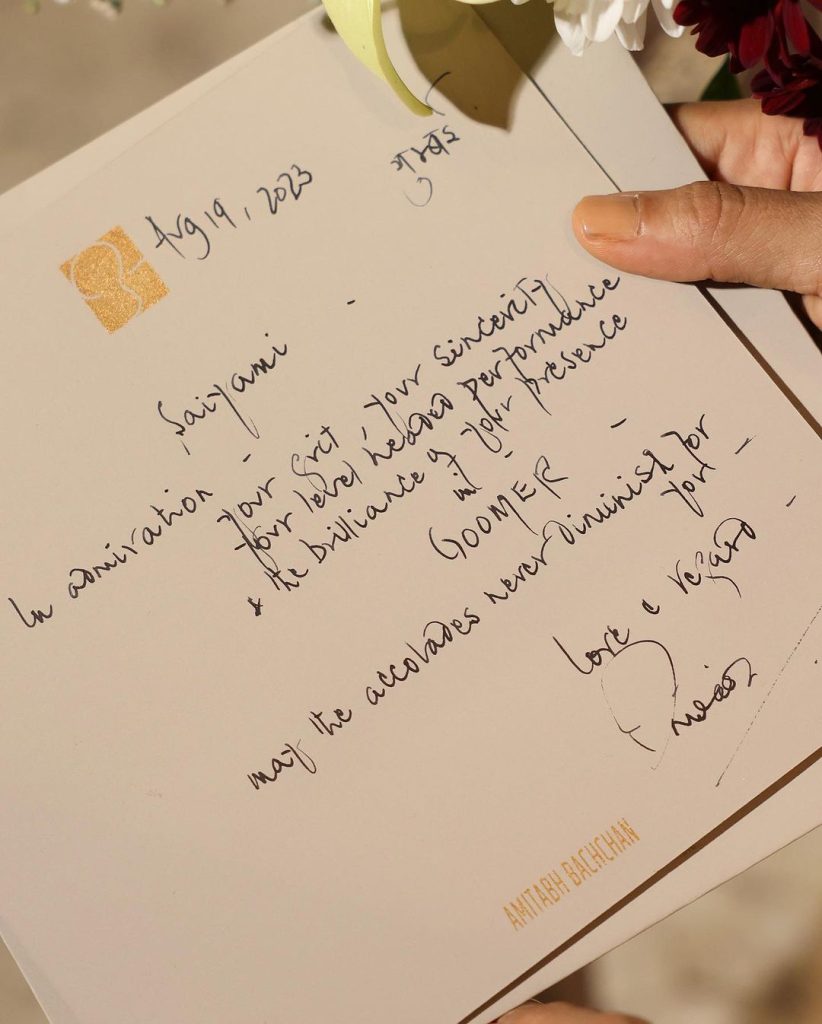 Aug 19, 2023
Saiyami -
In admiration -
your Grit, your sincerity
your level headed performance
& the brilliance of your presence
in -
GOOMER -
may the accolades never diminish for
you -
Love & regard -
AMITABH BACHCHAN